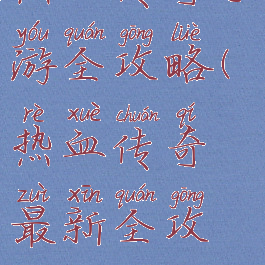 yóu quán gōng lüè
游全攻略(
rè xuè chuán qí
热血传奇
zuì xīn quán gōng
最新全攻